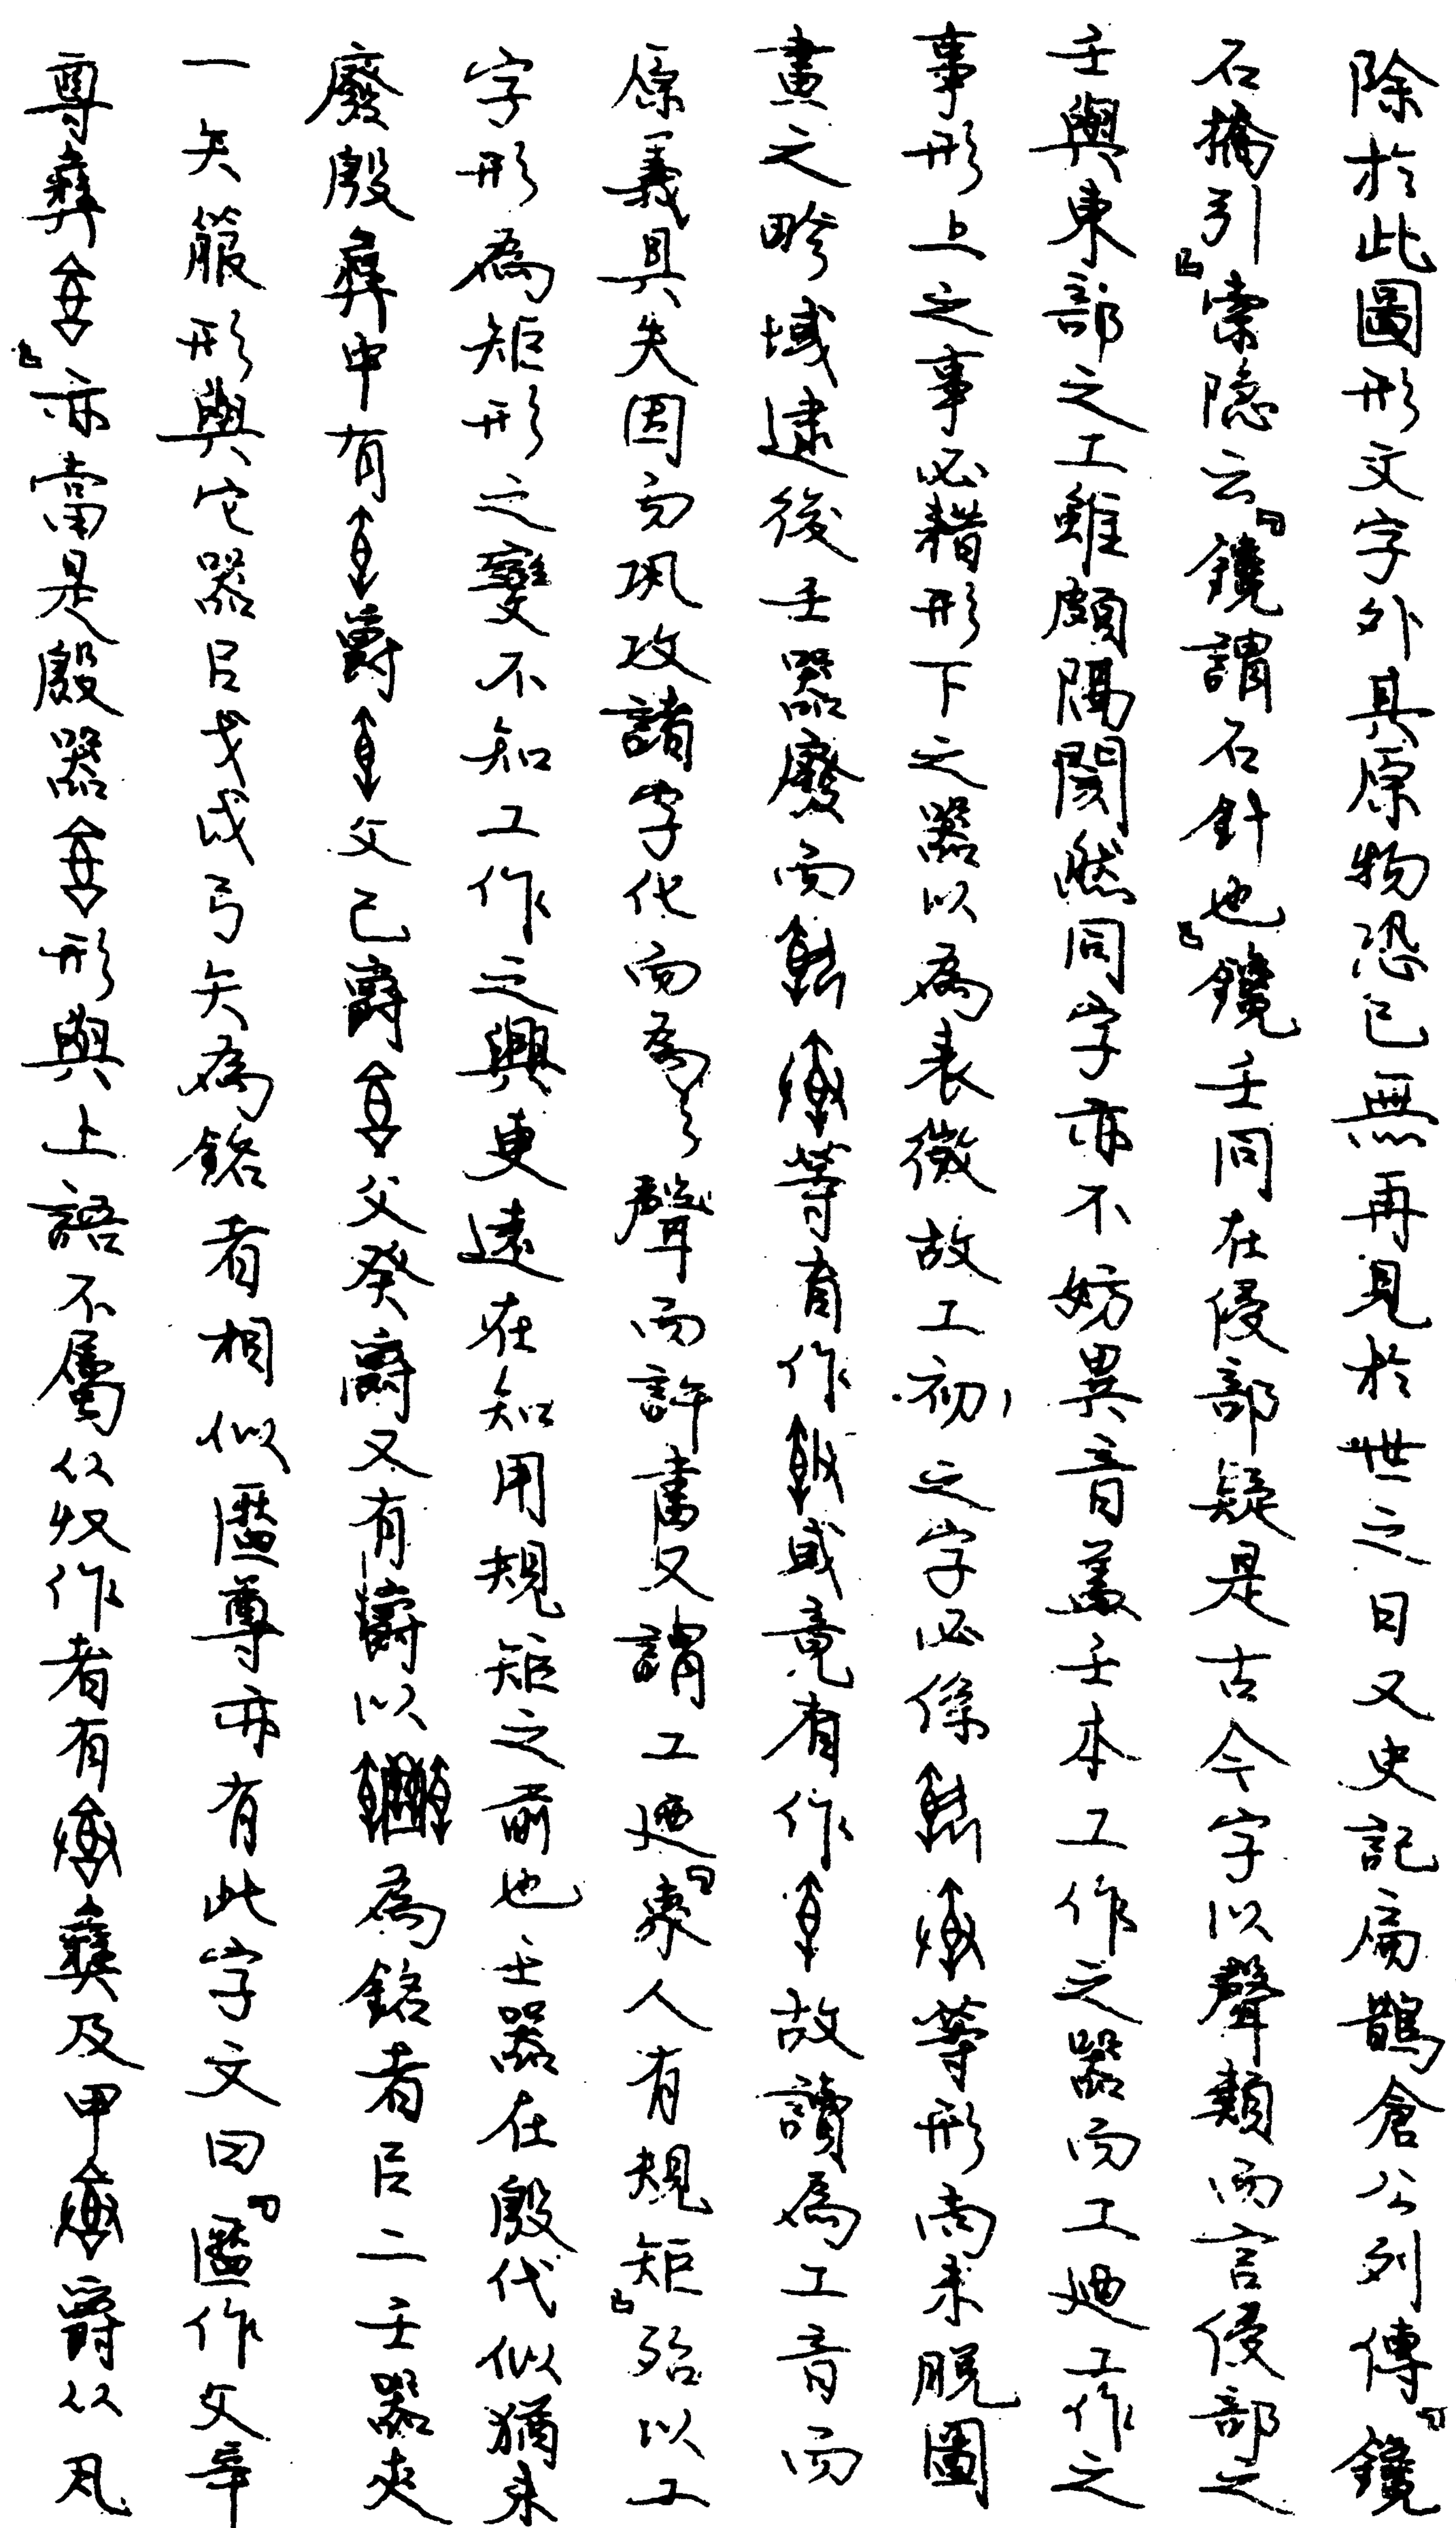 除於此圖形文字外其原物恐已無再見於世之日又史記扁鵲倉公列傳「鑱
石撟引」索隱云「鑱謂石針也」鑱壬同在侵部疑是古今字以聲類而言侵部之
壬與東部之工雖頗隔閡然同字亦不妨異音蓋壬本工作之器而工廼工作之
事形上之事必藉形下之器以為表徵故工初之字必係等形尚未脫圖
畫之畛域逮後壬器廢而等有作或竟有作故讀為工音而
原義具失因而巩攻諸字化而為聲而許書又謂工廼「象人有規矩」殆以工
字形為矩形之變不知工作之興更遠在知用規矩之前也壬器在殷代似猶未
廢殷彝中有爵父己爵父癸爵又有爵以為銘者㠯二壬器夾
一矢箙形與它器㠯戈戉弓矢為銘者相似匿尊亦有此字文曰「匿作父辛
尊彝」亦當是殷器形與上語不屬从収作者有彝及甲爵从凡